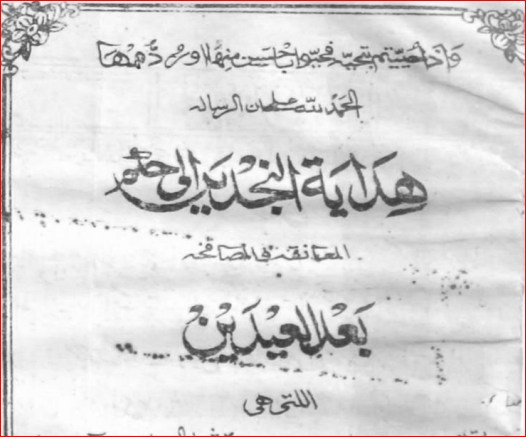 واذا حييتم بتحية فحيوا باحسن منها او ردوها
الحمد لله على ان الرساله
هداية النجدين الى حكم
المعانقه والمصافحه
بعد العيدين
اللتى هى